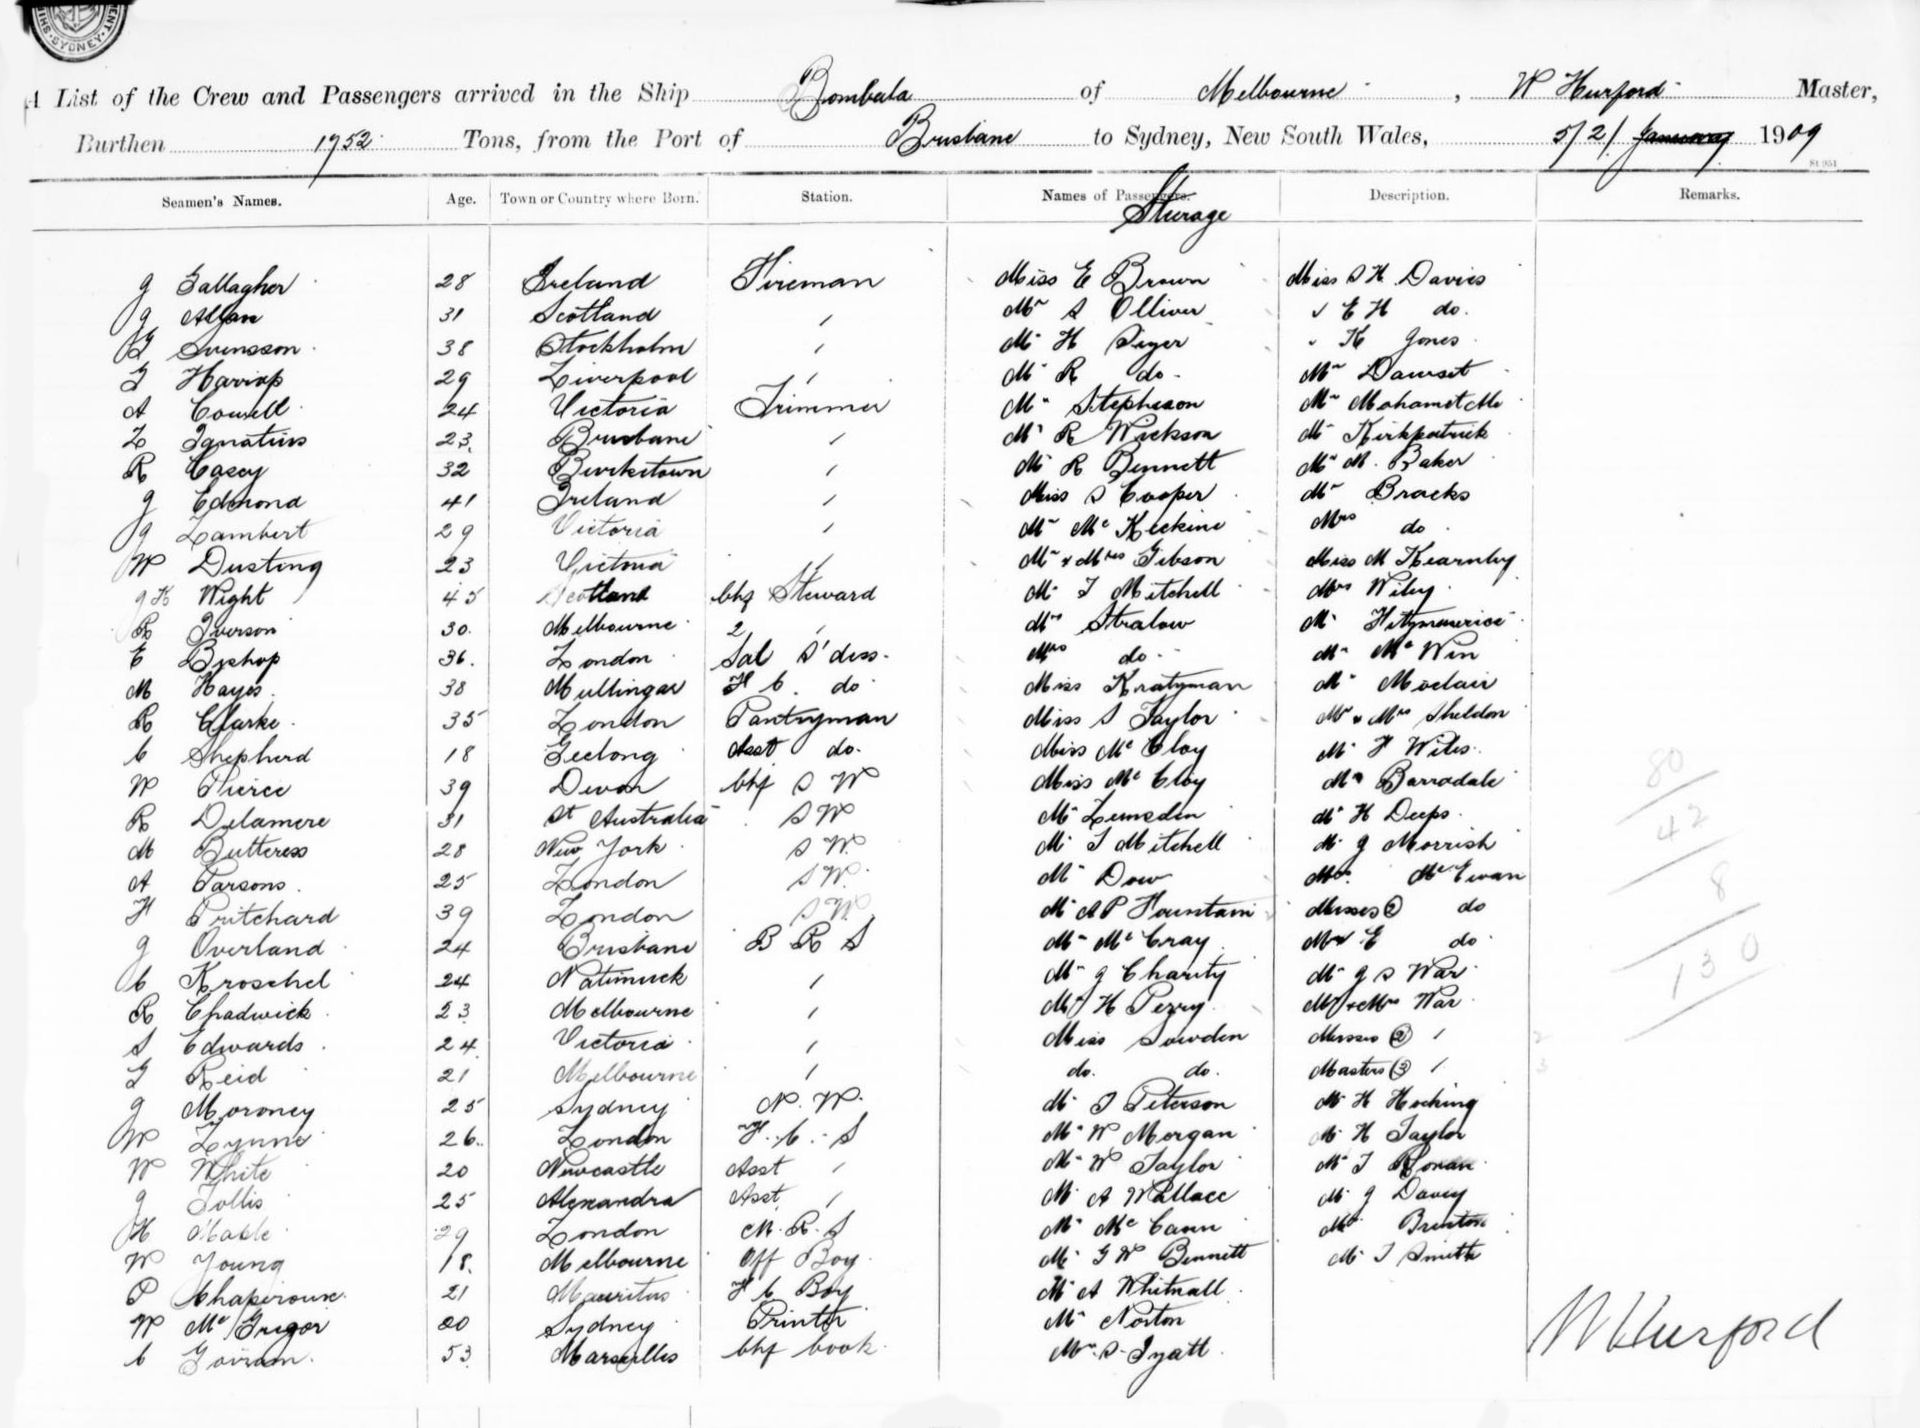 SYDNEY
A List of the Crew and Passengers arrived in the Ship Bombala of Melbourne, W Hurford Master,
Burthen 1752 Tons, from the Port of Brisbane to Sydney, New South Wales, 5/2/ January 1909
St 951
Seamen's Names. Age. Town or Country where Born. Station. Names of Passengers. Description. Remarks.
Sturage
J Gallagher 28 Ireland Fireman Miss E Brown Miss S H Davies
J Allan 31 Scotland / Mr S Olliver " E H do.
Svensson 38 Stockholm / Mr H " K Jones
29 Liverpool / Mr R do. Mr
A Cowell 24 Victoria Trimmer Mr Stephenson Mr
L Ignatius 23. Brisbane / Mr R Wickson Mr Kirkpatrick
R Casey 32 Burketown / Mr R Bennett Mr M. Baker
J Edmond 41 Ireland / Miss S Cooper Mr Brooks
J Lambert 29 Victoria / Mr Mc Mrs do
W Dusting 23 Victoria / Mr & Mrs Gibson Miss M
J K Wight 45 Scotland Chf Steward Mr T Mitchell Mrs Wiley
R Iverson 30. Melbourne 2 / Mrs Mr
E Bishop 36. London Sal S'dess. Mrs do Mr Mc Win
M Hayes 38 Mullingar F C. do Miss Mr
R Clarke 35 London Pantryman Miss S Taylor Mr & Mrs Sheldon
C Shepherd 18 Geelong Asst do. Miss McCloy Mr F Wiles
W Pierce 39 Devon Chf S W Miss McCloy Mr Barradale
R Delamere 31 St Australia S W Mr Lumsden Mr H Deeps
M Buttress 28 New York S W. Mr T Mitchell Mr J Morrish
A Parsons 25 London S W. Mr Dow McEwan
F Pritchard 39 London Mr A P Fountain Misses 2 do
J Overland 24 Brisbane B R S Mr McCray E do
C Kroschel 24 Natimuck / Mr J Charity Mr J S War
R Chadwick 23 Melbourne / Mr H Perry Mr & Mrs War
S Edwards 24 Victoria / Miss Sowden Misses 2 /
Reid 21 Melbourne / do. do. Masters 3 /
J Moroney 25 Sydney N. W. Mr Peterson Mr H Hocking
W Lynne 26. London F. C. S Mr W Morgan Mr H Taylor
W White 20 Newcastle Asst / Mr W Taylor Mr T
J Tollis 25 Alexandra Asst / Mr A Wallace Mr J Davey
H 29 London M. R. S Mr McCann
W Young 18. Melbourne Off Boy Mr G W Bennett Mr T Smith
P 21 Mauritus F C Boy Mr A Whitnall
W McGregor 20 Sydney Printer Mr Norton
C 53 Marseilles Chf Cook Mr S
80
42
8
130
W Hurford